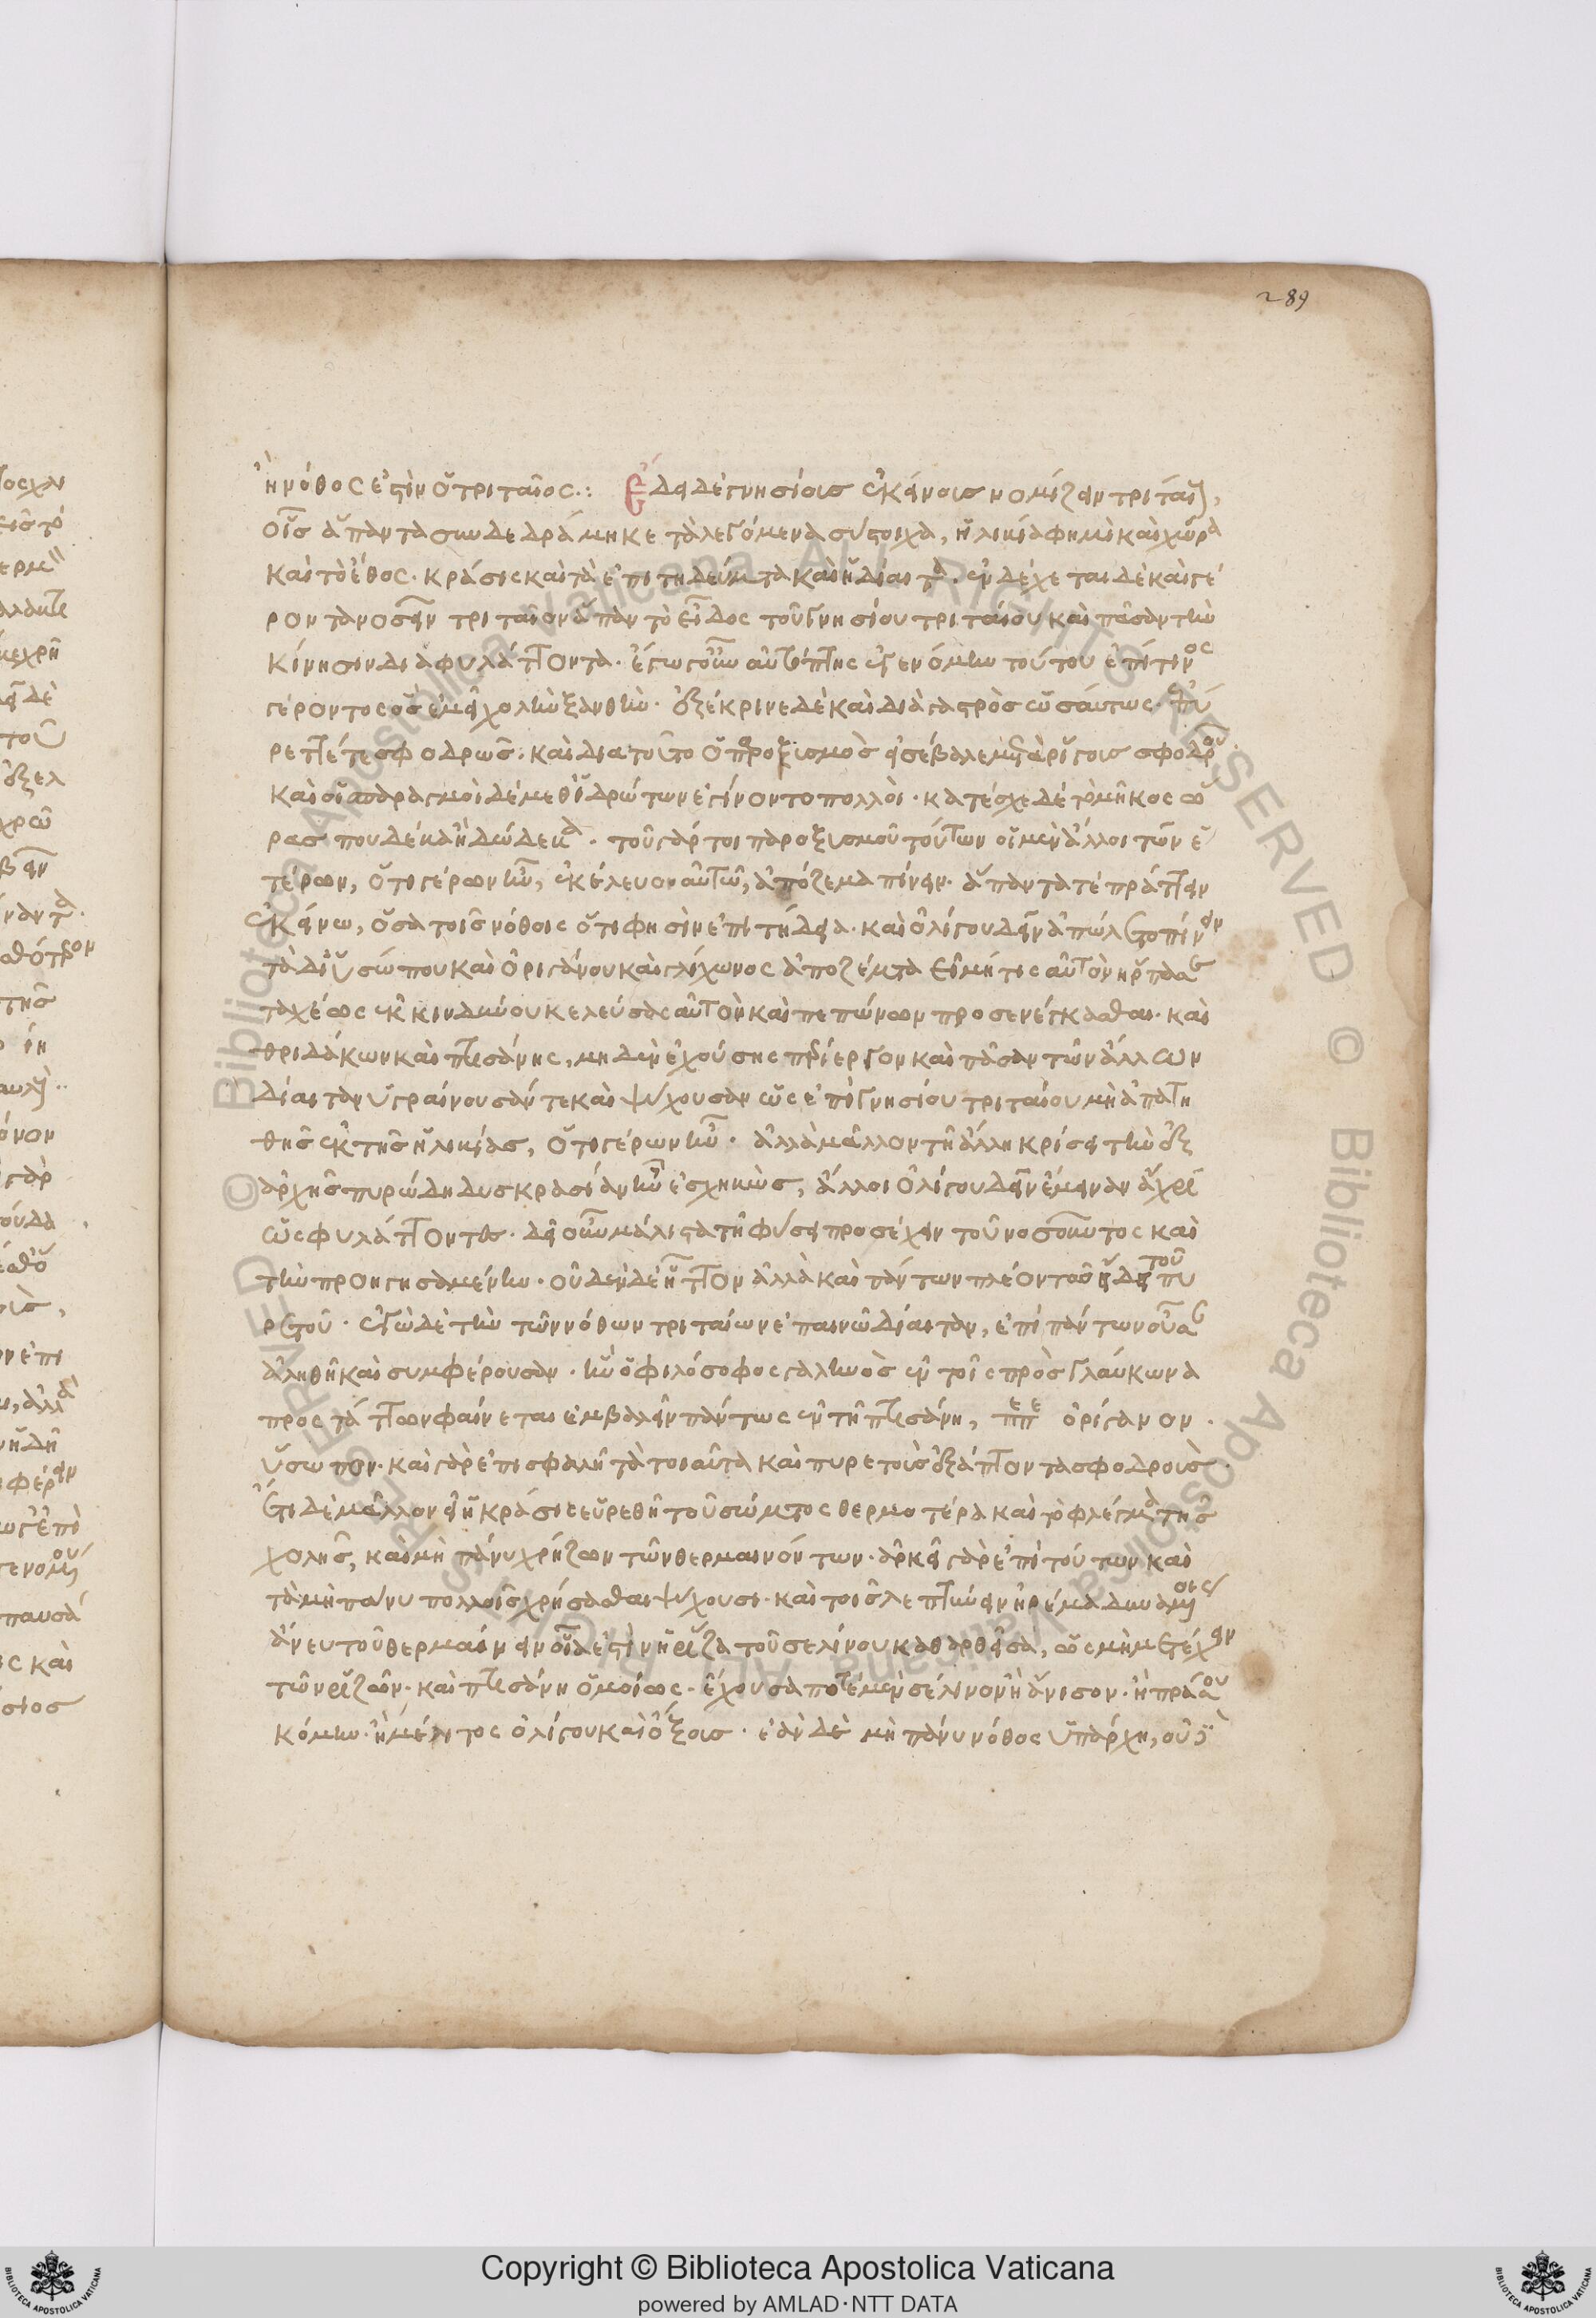 289
ἢ νόθος ἐστὶν ὁ τριταῖος.: Ἔδει δὲ γνησίοις ἐκείνοις νομίζειν τριταί,
οἷς ἅπαντα συνδεδράμηκε τὰ λεγόμενα σύστοιχα, ἡλικία φημὶ καὶ χώρα
καὶ τὸ ἔθος. κράσις καὶ τὰ ἐπιτηδεύματα καὶ ἡ δίαιτα. ἐνδέχεται δὲ καὶ γέ
ροντα νοσεῖν τριταῖον ἅπαν τὸ εἶδος τοῦ γνησίου τριταίου καὶ πᾶσαν τὴν
κίνησιν διαφυλάττοντα. ἔγωγ οὖν αὐτόπτης ἐγενόμην τούτου ἐπί τινος
γέροντος ὃς ἐμεῖ χολὴν ξανθήν. ἐξέκρινε δὲ καὶ διὰ γαστρὸς ὡσαύτως. ἐπύ
ρεττέ τε σφοδρῶς. καὶ διατοῦτο ὁ παροξισμὸς εἰσέβαλε μετὰ ρίγους σφοδροῦ.
καὶ οἱ παρασμοὶ δέ μεθ ἱδρώτων ἐγίνοντο πολλοὶ. κατέσχε δέ τὸ μῆκος ὥ
ρας που δέκα ἢ δώδεκα. τοῦ γάρ τοι παροξισμοῦ τούτων οἱ μὲν ἄλλοι τῶν ἑ
τέρων, ὅτι γέρων ἦν, ἐκέλευον αὐτῶ, ἀπόζεμα πίνειν. ἅπαντα τέ πράττειν
ἐκείνω, ὅσα τοῖς νόθοις ὅτι φησὶν ἐπιτήδεια. καὶ ὀλίγου δεῖν ἀπώλετο πίνειν
τὰ δι ὑσώπου καὶ ὀριγάνου καὶ γλίχωνος ἀποζέματα εἰ μή τις αὐτὸν ἥρπασε
ταχέως ἐκ κινδύνου κελεύσας αὐτὸν καὶ πεπώνων προσενέγκασθαι. καὶ
θριδάκων καὶ πτισάνης, μηδὲν ἐχούσης περίεργον καὶ πᾶσαν τῶν ἄλλων
δίαιταν ὑγραίνουσάν τε καὶ ψύχουσαν ὡς ἐπὶ γνησίου τριταίου μὴ ἀπατη
θῆς ἐκ τῆς ἡλικίας, ὅτι γέρων ἦν. ἀλλὰ μᾶλλον τῆ ἄλλη κρίσει τὴν ἐξ
ἀρχῆς πυρώδη δυσκρασίαν ἦν ἐσχηκὼς, ἄλλοι ὀλίγου δεῖν ἔμειναν ἄχρι
ὡς φυλάττοντες. δεῖ οὖν μάλιστα τῆ φύσει προσέχειν τοῦ νοσοῦντος καὶ
τὴν προηγησαμένην. οὐδὲν δὲ ἧττον ἀλλὰ καὶ πάντων πλέον τὰς ἤδη τοῦ πυ
ρετοῦ. ἐγὼ δὲ τὴν τῶν νόθων τριταίων ἐπαινῶ δίαιταν, ἐπὶ πάντων οὖσα
ἀληθῆ καὶ συμφέρουσαν. ἣν ὁ φιλόσοφος γαληνὸς ἐν τοῖς πρὸς γλαύκωνα
προστάττων φαίνεται ἐμβαλεῖν πάντως ἐν τῆ πτισάνη, πέπε ὀρίγανον.
ὕσωπον. καὶ γὰρ ἐπισφαλῆ τὰ τοιαῦτα καὶ πυρετοὺς ἐξάπτοντα σφοδροὺς.
Ἔτι δὲ μᾶλλον εἰ ἡ κράσις εὑρεθῆ τοῦ σώματος θερμοτέρα καὶ τὸ φλέγμα τῆς
χολῆς, καὶ μὴ πάνυ χρήζων τῶν θερμαινόντων. ἀρκεῖ γὰρ ἐπὶ τούτων καὶ
τὰ μὴ πάνυ πολλοῖς χρήσασθαι ψύχουσι. καὶ τοῖς λεπτύνειν ἠρέμα δυναμένοις
ἄνευ τοῦ θερμαίνειν οἷά ἐστιν ἡ ρίζα τοῦ σελίνου καθαρθεῖσα, ὡς μὴ μετέχειν
τῶν ριζῶν. καὶ πτισάνη ὁμοίως. ἔχουσα ποτέ μὲν σέλινον ἢ ἄνισον. ἢ πράσου
κόμην. ἢ μέλιτος ὀλίγου καὶ ὄξοις. ἐὰν δὲ μὴ πάνυ νόθος ὑπάρχη, οὐδὲ